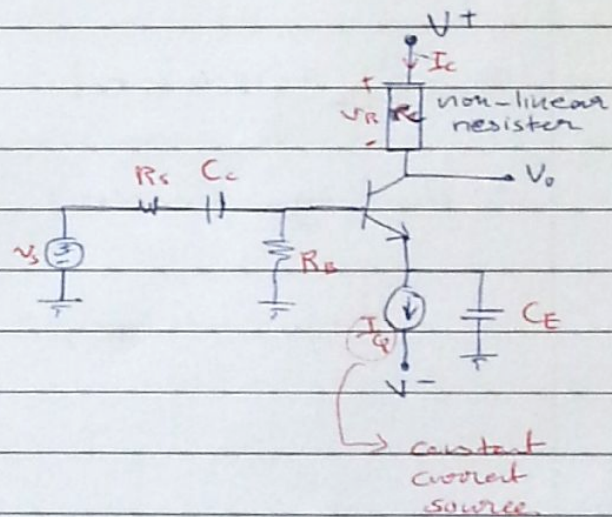 V+
Ic
+
VR Rc non-linear
resister
-
Rs Cc
Vo
vs
RB
IQ
CE
V-
constant
current
source